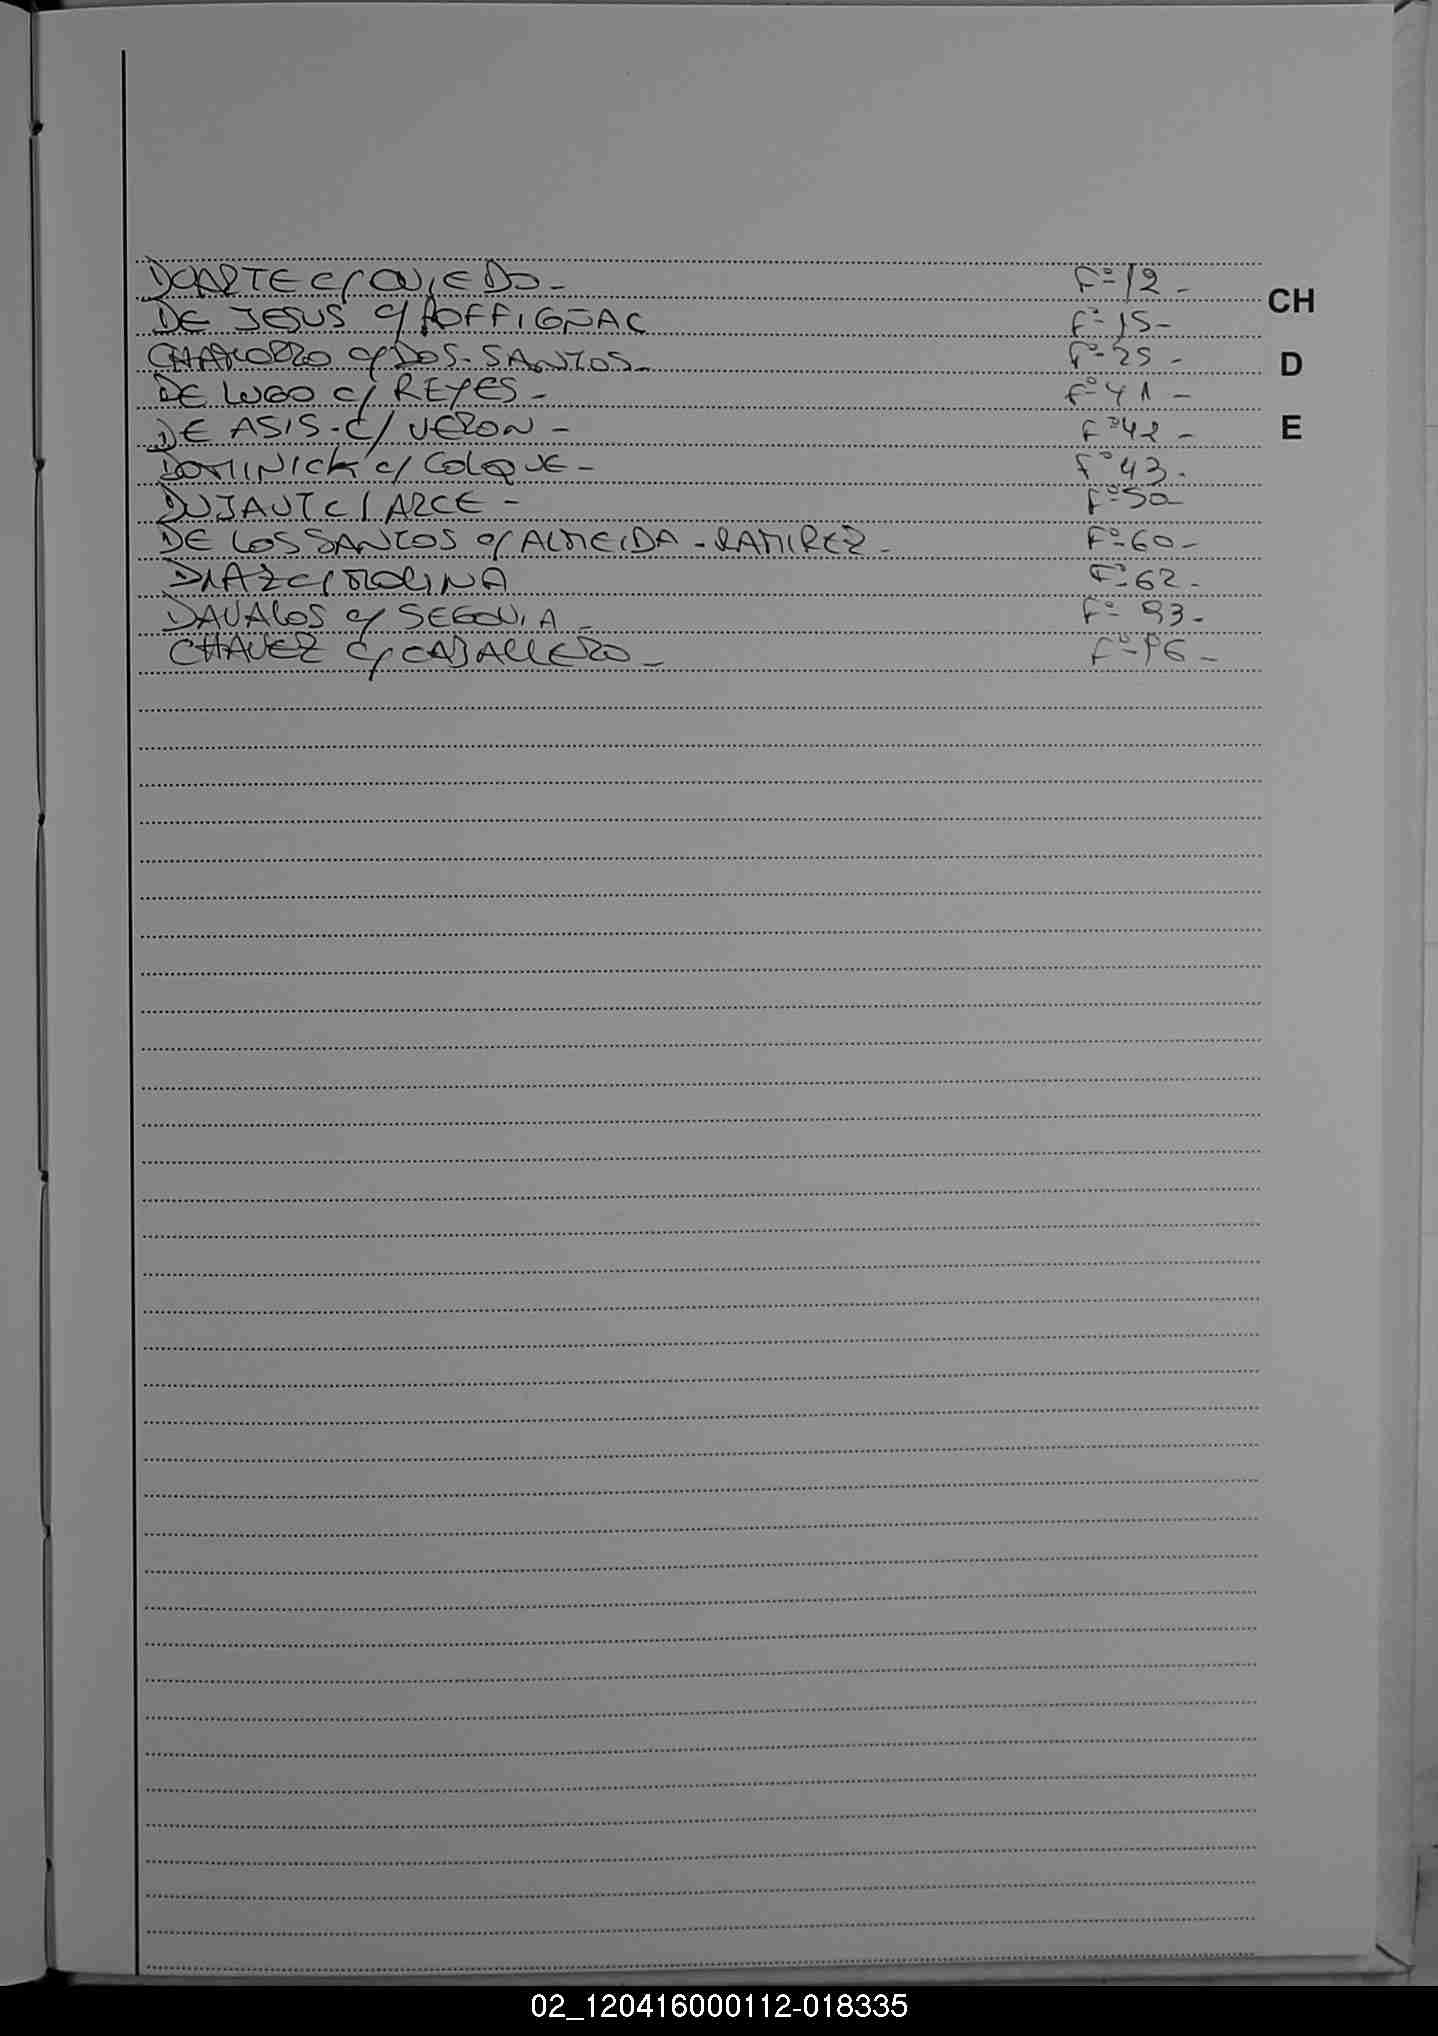 DUARTE C/ OVIEDO - Fº 12 -
DE JESUS C/ POFFIGÑAC Fº 15 -
CHAMORRO C/ DOS-SANTOS - Fº 25 -
DE LUGO C/ REYES - Fº 41 -
DE ASIS - C/ VERON - Fº 42 -
DOMINICK C/ COLQUE - Fº 43 -
DUJAUT C/ ARCE - Fº 50 -
DE LOS SANTOS C/ ALMEIDA - RAMIREZ - Fº 60 -
DIAZ C/ MOLINA Fº 62 -
DAVALOS C/ SEGOVIA - Fº 93 -
CHAVEZ C/ CABALLERO - Fº 96 -
CH
D
E
02_120416000112-018335